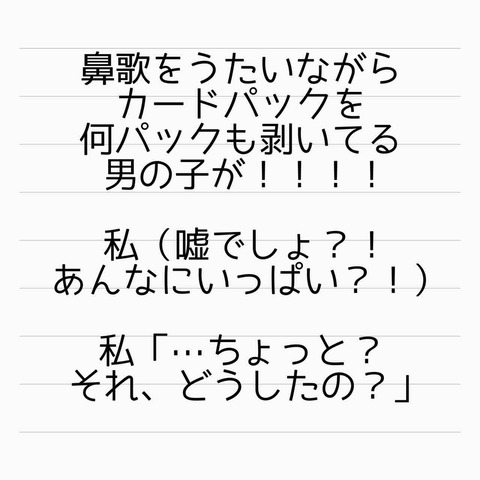 鼻歌をうたいながら
カードパックを
何パックも剥いてる
男の子が！！！！
私（嘘でしょ？！
あんなにいっぱい？！）
私「…ちょっと？
それ、どうしたの？」